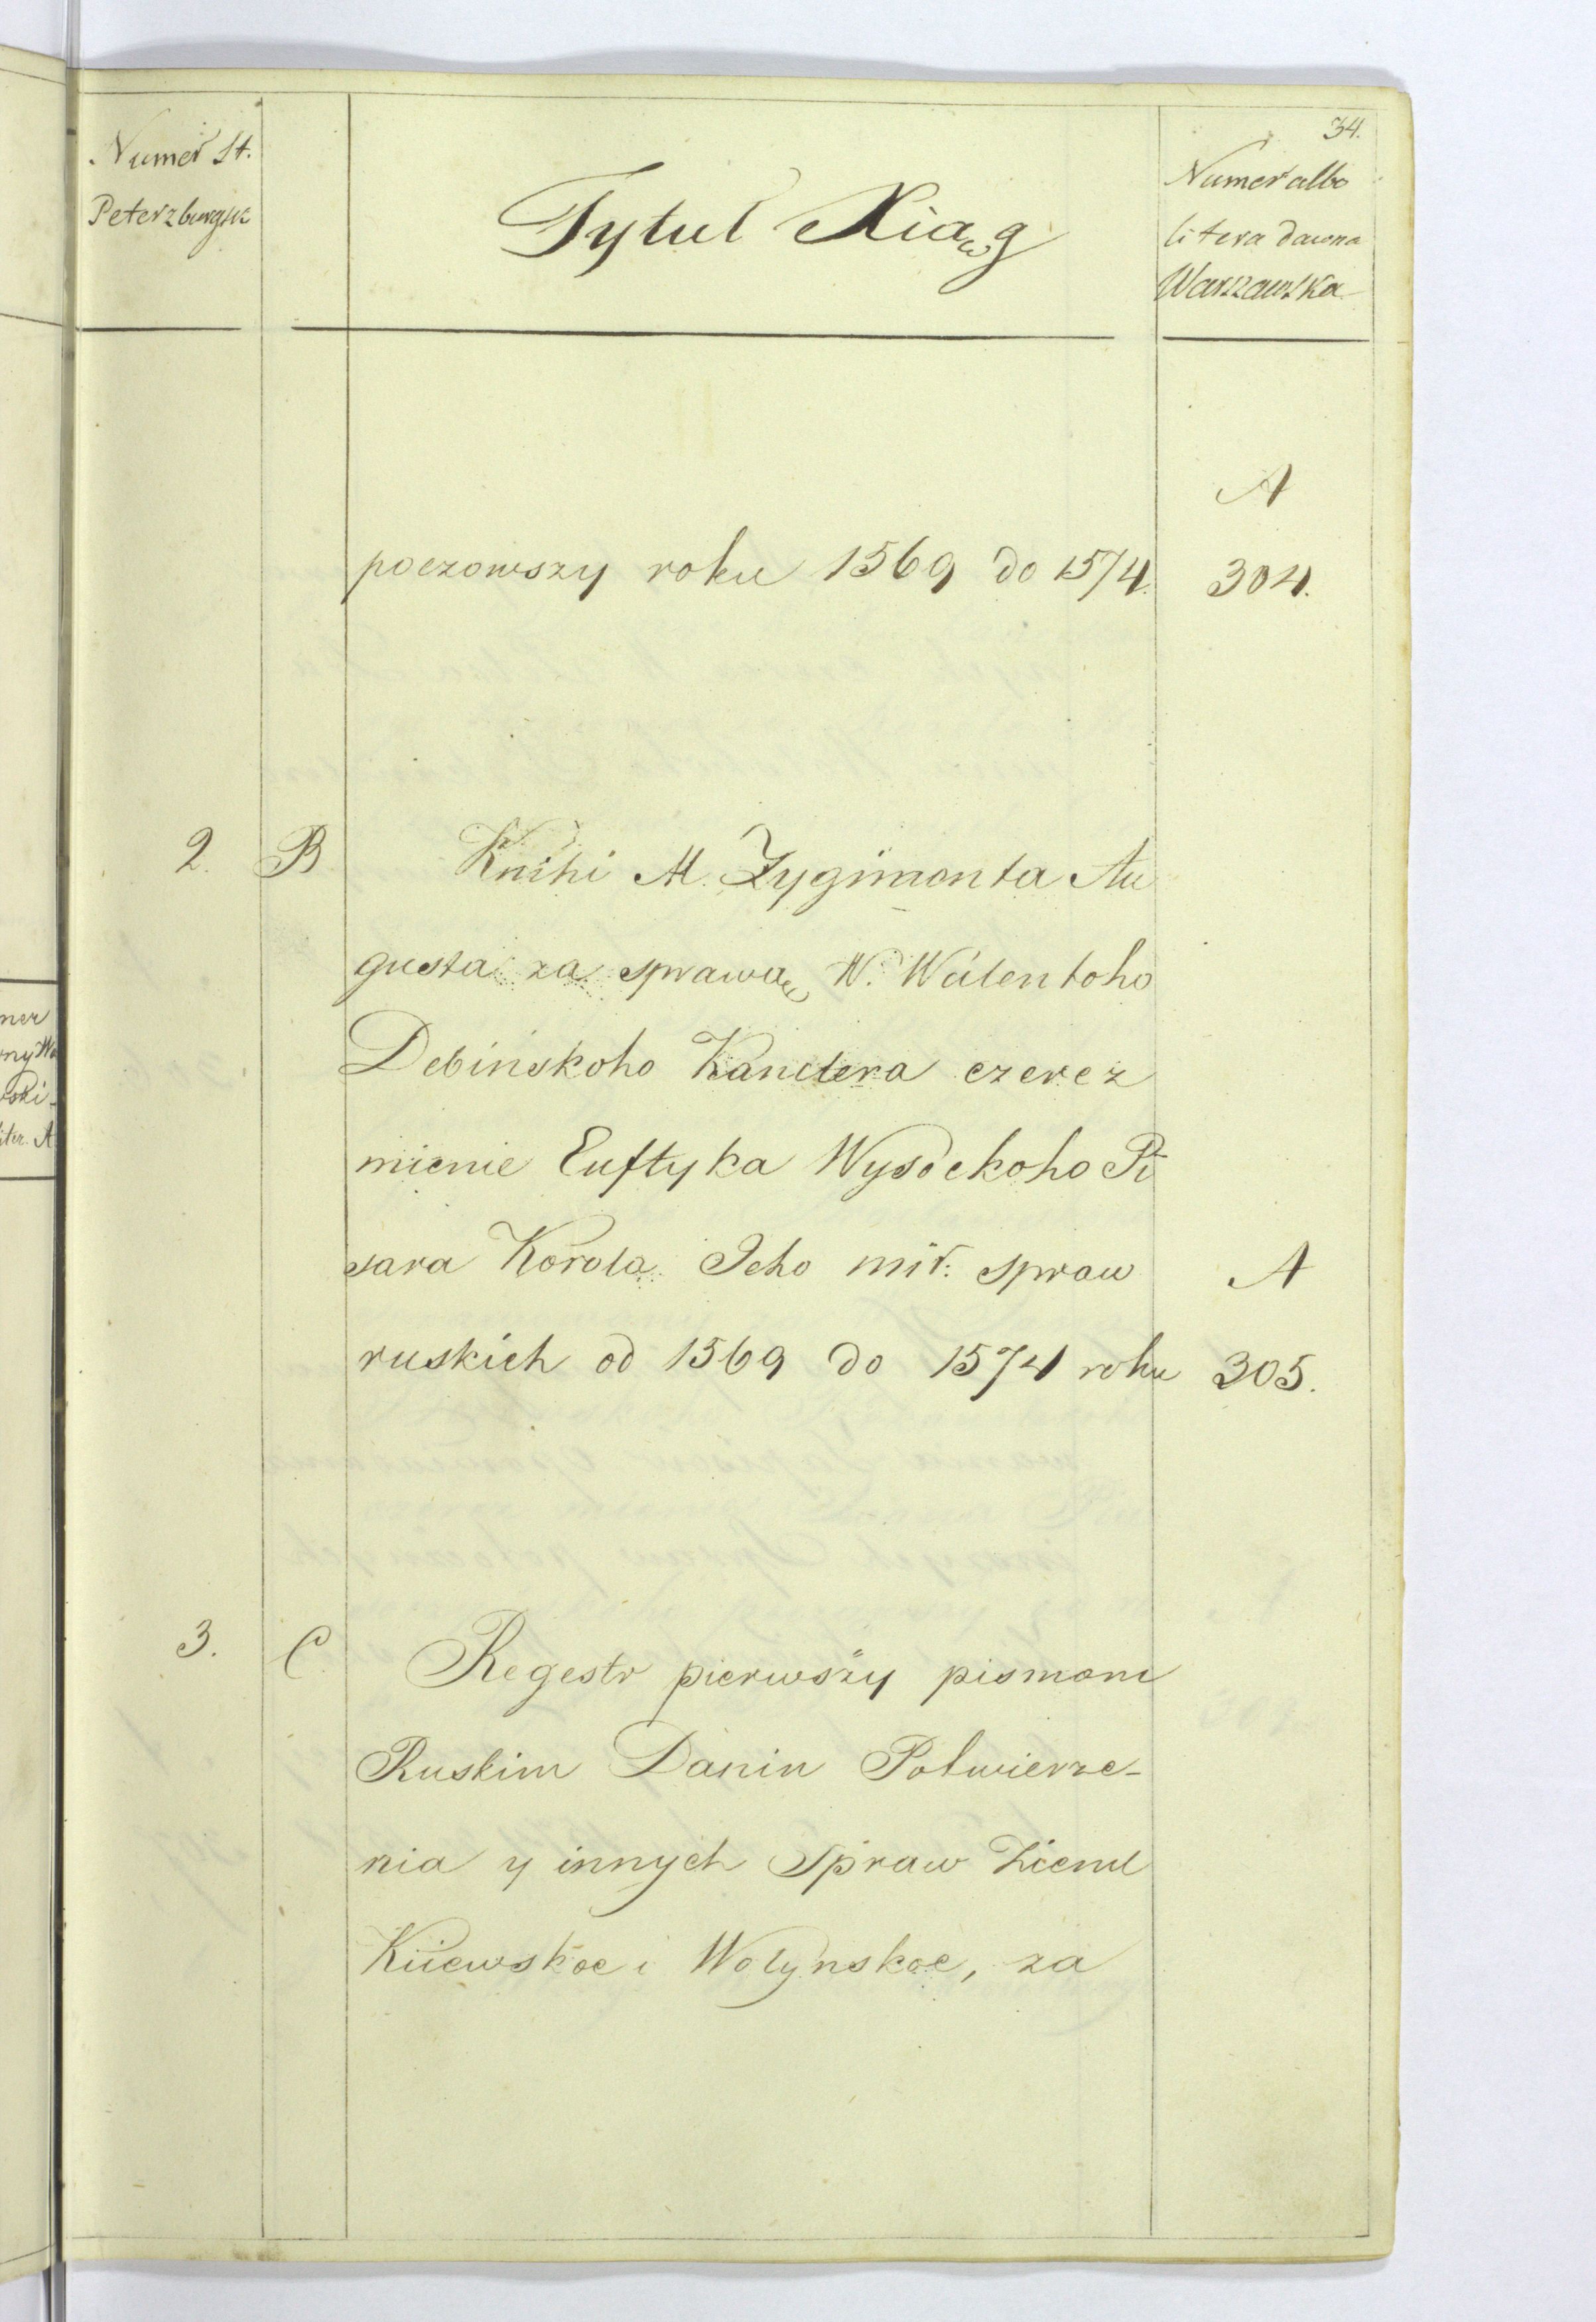 34.
Numer St.
Peterzbursk
Tytul Xiąg
Numer albo
litera dawna
Warszawska
A
poczowszy roku 1569 do 1574. 304.
2. B Knihi M. Zygimonta Au
gusta za sprawą W. Walentoho
Debinskoho Kanclera czerez
mienie Euftyka Wysockoho Pi
sara Korola Jeho mił: spraw A
ruskich od 1569 do 1574 roku 305.
3. C Regestr pierwszy pismom
Ruskim Danin Potwierze-
nia y innych Spraw Zieml
Kiiewskoe i Wolynskoe, za